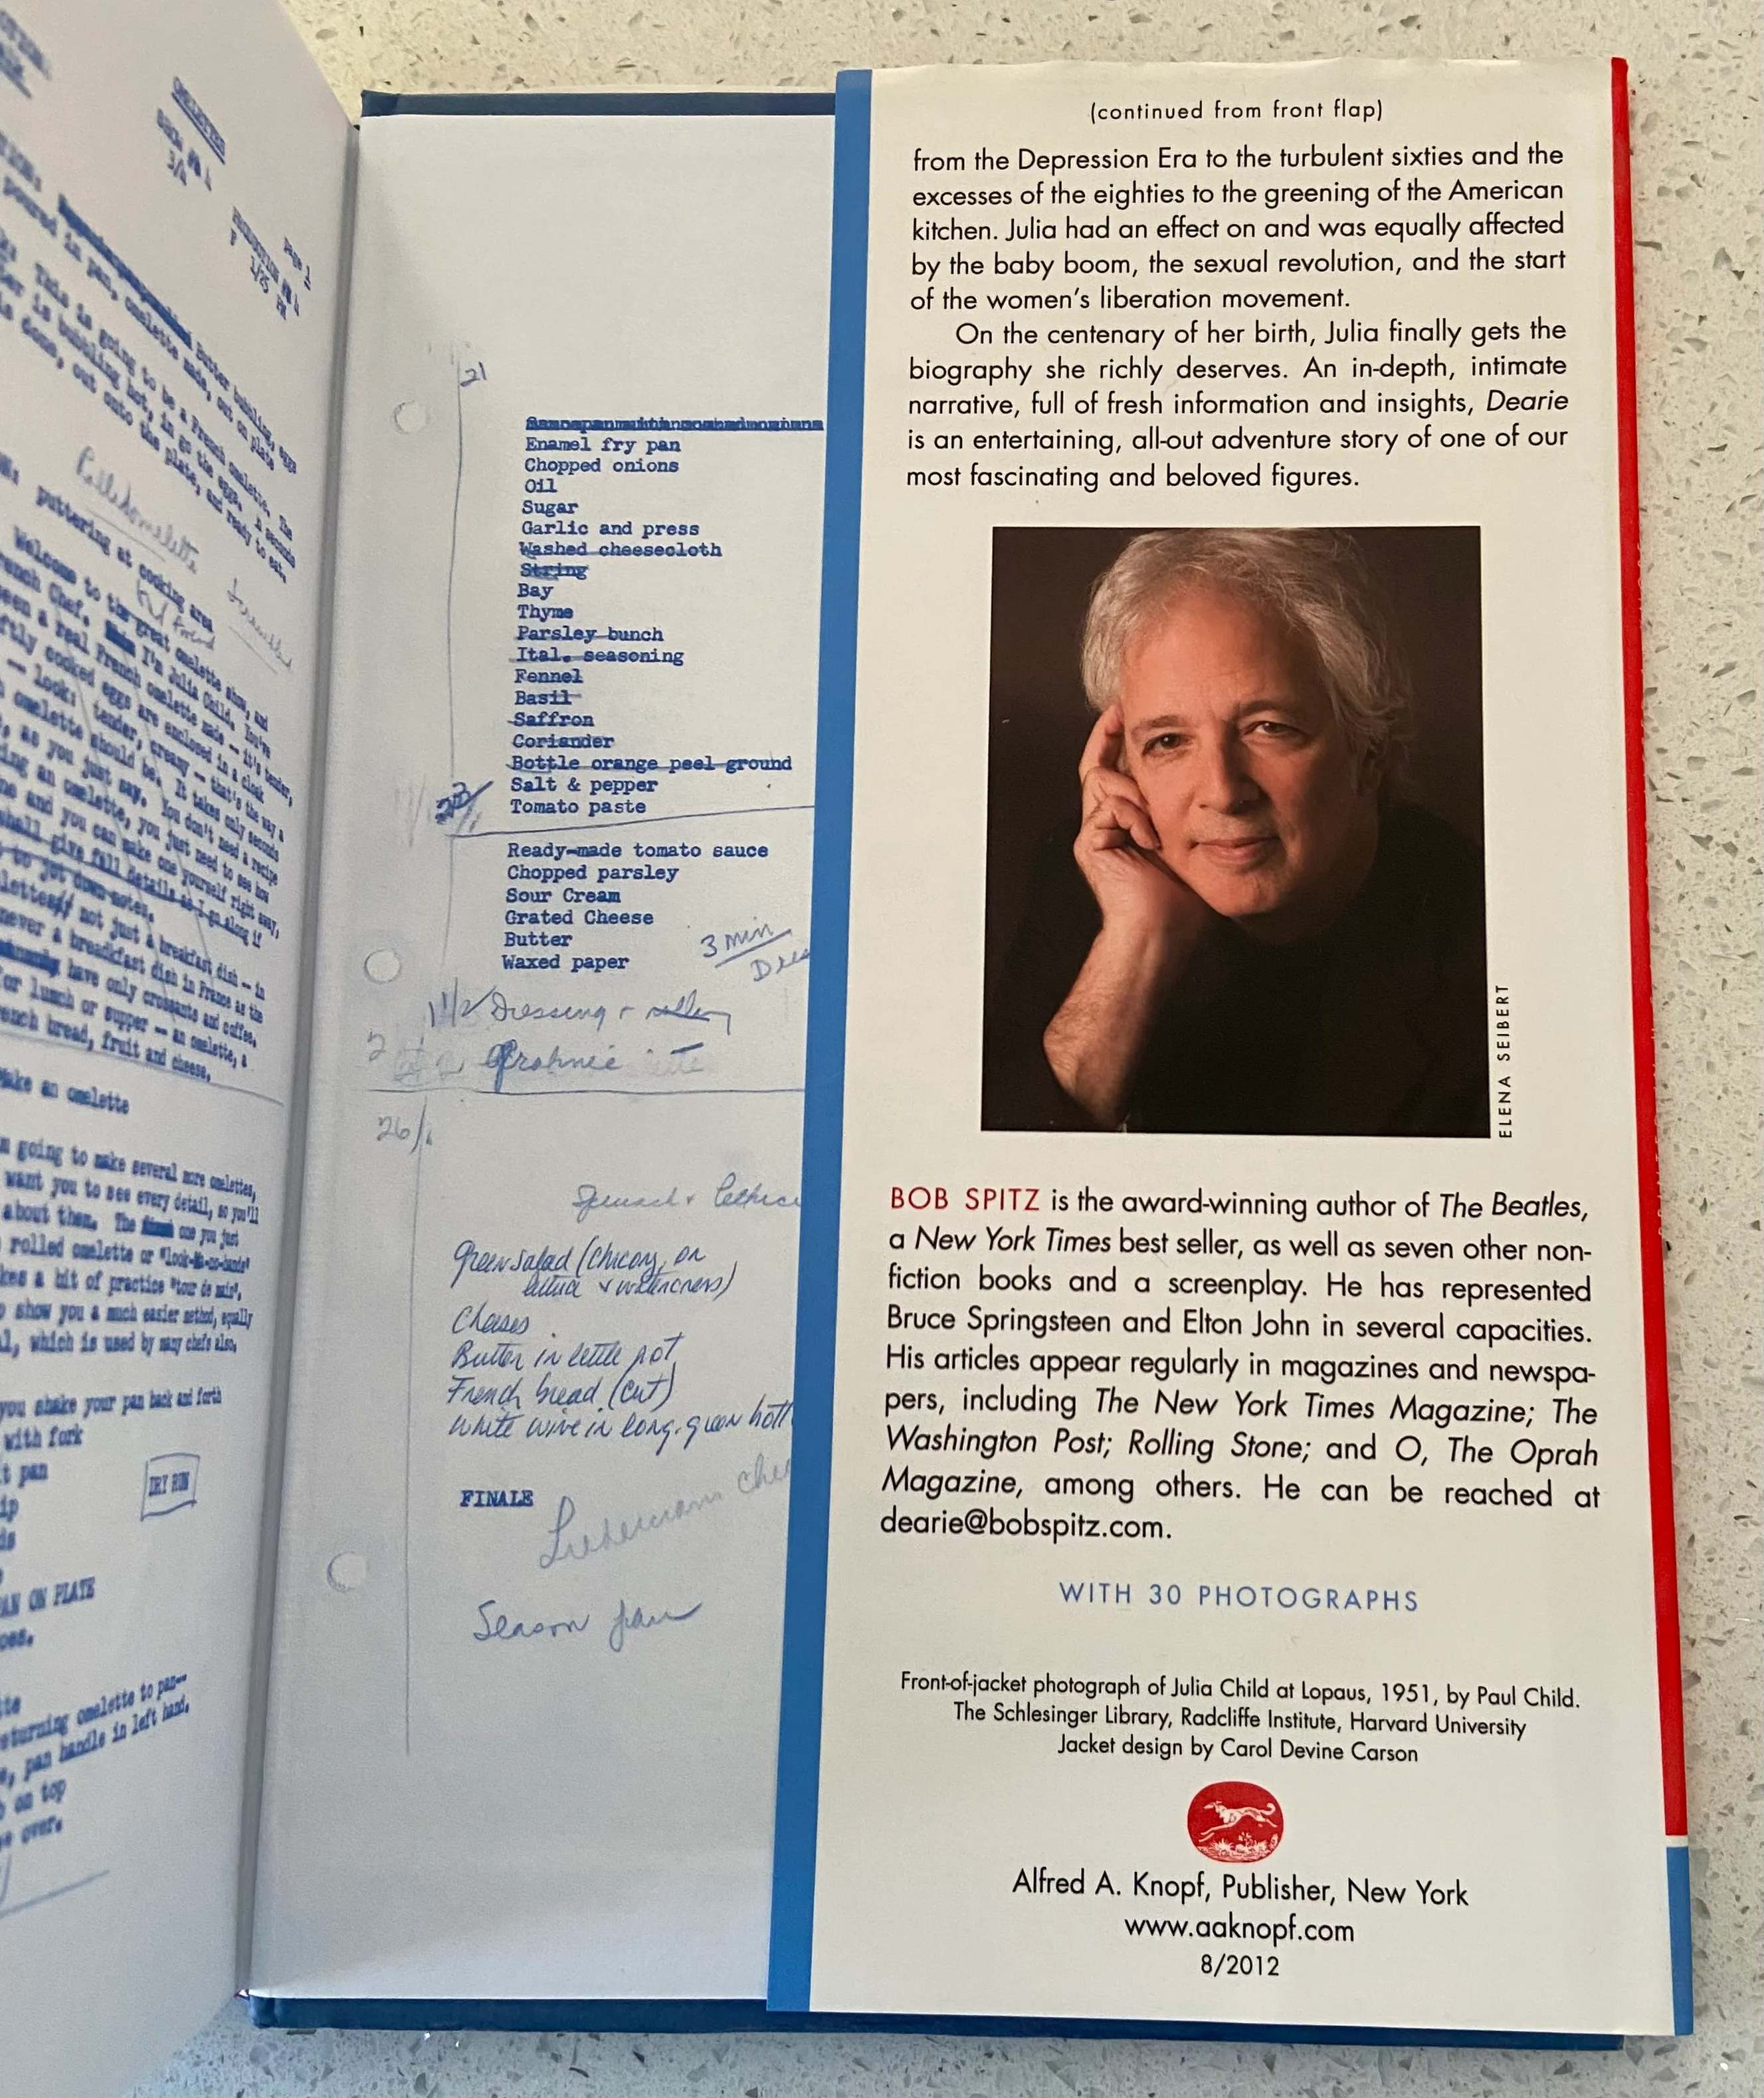 OMELETTES
Page 1
puttering at cooking area
Welcome to the great omelette show, and
French Chef. I'm Julia Child. You've
seen a real French omelette made — it's tender,
softly cooked eggs are enclosed in a cloak
— look: tender, creamy — that's the way a
omelette should be. It takes only seconds
, as you just say. You don't need a recipe
ing an omelette, you just need to see how
ne and you can make one yourself right away,
shall give full details as I go along if
to jot down notes.
not just a breakfast dish — in
never a breadkfast dish in France as the
have only croissants and coffee.
for lunch or supper — an omelette, a
French bread, fruit and cheese.
Make an omelette
going to make several more omelettes,
want you to see every detail, so you'll
about them. The one you just
rolled omelette or
kes a bit of practice "tour de main",
show you a much easier method, equally
, which is used by many chefs also.
you shake your pan back and forth
with fork
t pan
DRY RUN
PAN ON PLATE
returning omelette to pan—
, pan handle in left hand,
on top
over.
21
Enamel fry pan
Chopped onions
Oil
Sugar
Garlic and press
Washed cheesecloth
String
Bay
Thyme
Parsley bunch
Ital. seasoning
Fennel
Basil
Saffron
Coriander
Bottle orange peel ground
Salt & pepper
Tomato paste
Ready-made tomato sauce
Chopped parsley
Sour Cream
Grated Cheese
Butter
Waxed paper
3 min
1 1/2 Dressing +
26/
Green salad (chicory, or
lettuce + watercress)
Cheeses
Butter in little pot
French bread (cut)
White wine in long green bott
FINALE
Season pan
(continued from front flap)
from the Depression Era to the turbulent sixties and the
excesses of the eighties to the greening of the American
kitchen. Julia had an effect on and was equally affected
by the baby boom, the sexual revolution, and the start
of the women's liberation movement.
On the centenary of her birth, Julia finally gets the
biography she richly deserves. An in-depth, intimate
narrative, full of fresh information and insights, Dearie
is an entertaining, all-out adventure story of one of our
most fascinating and beloved figures.
ELENA SEIBERT
BOB SPITZ is the award-winning author of The Beatles,
a New York Times best seller, as well as seven other non-
fiction books and a screenplay. He has represented
Bruce Springsteen and Elton John in several capacities.
His articles appear regularly in magazines and newspa-
pers, including The New York Times Magazine; The
Washington Post; Rolling Stone; and O, The Oprah
Magazine, among others. He can be reached at
dearie@bobspitz.com.
WITH 30 PHOTOGRAPHS
Front-of-jacket photograph of Julia Child at Lopaus, 1951, by Paul Child.
The Schlesinger Library, Radcliffe Institute, Harvard University
Jacket design by Carol Devine Carson
Alfred A. Knopf, Publisher, New York
www.aaknopf.com
8/2012